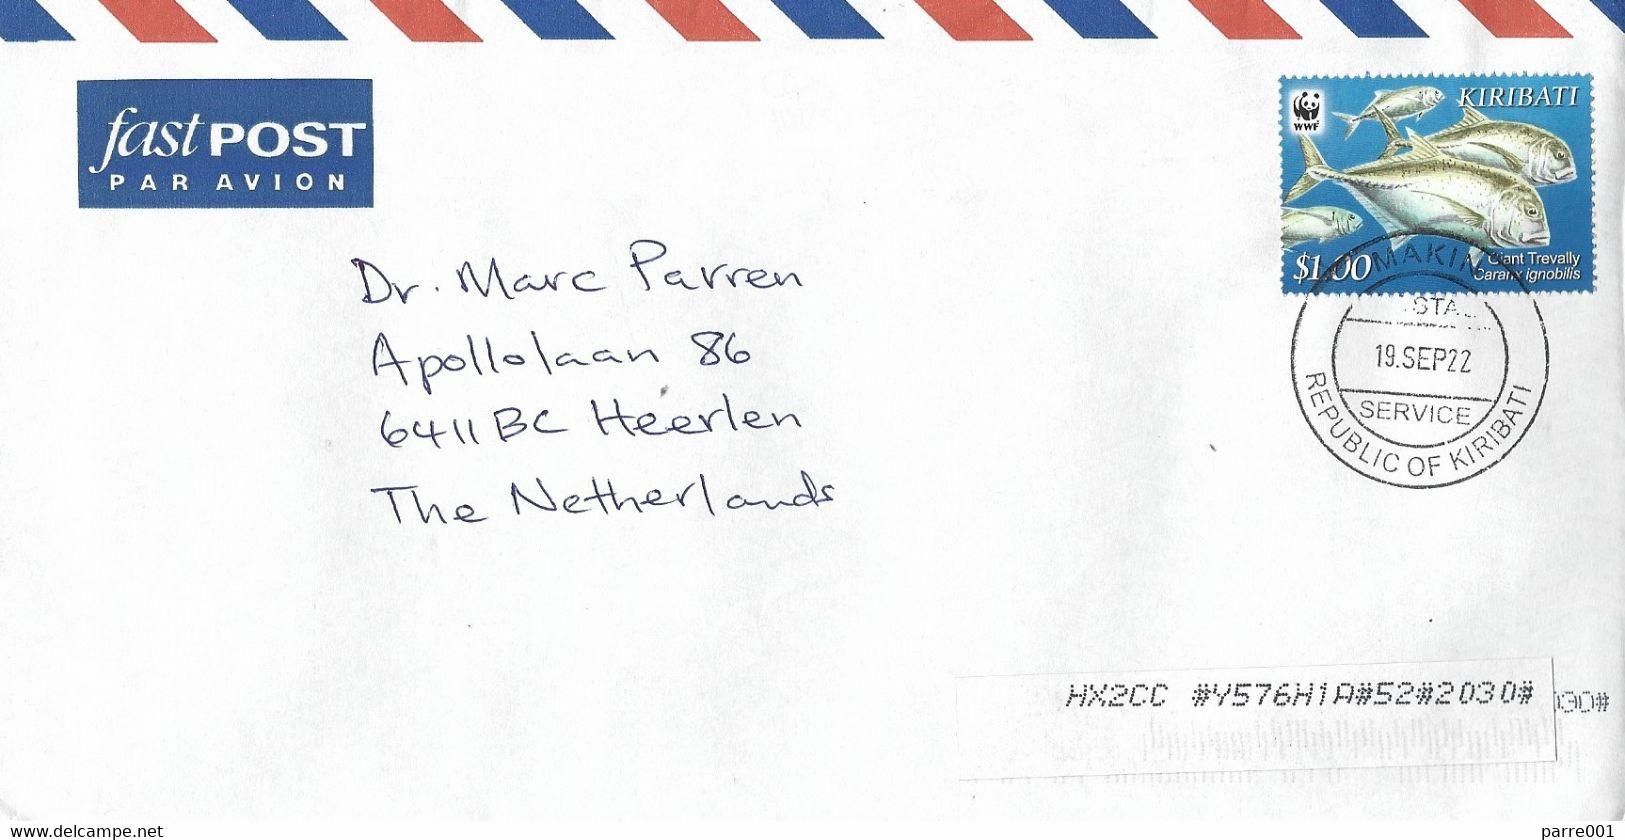 fast POST
PAR AVION
WWF
KIRIBATI
$1.00
Giant Trevally
Caranx ignobilis
MAKIN
19.SEP22
SERVICE
REPUBLIC OF KIRIBATI
Dr. Marc Parren
Apollolaan 86
6411 BC Heerlen
The Netherlands
HX2CC #Y576H1A#52#2030#
030#
www.delcampe.net
parre001